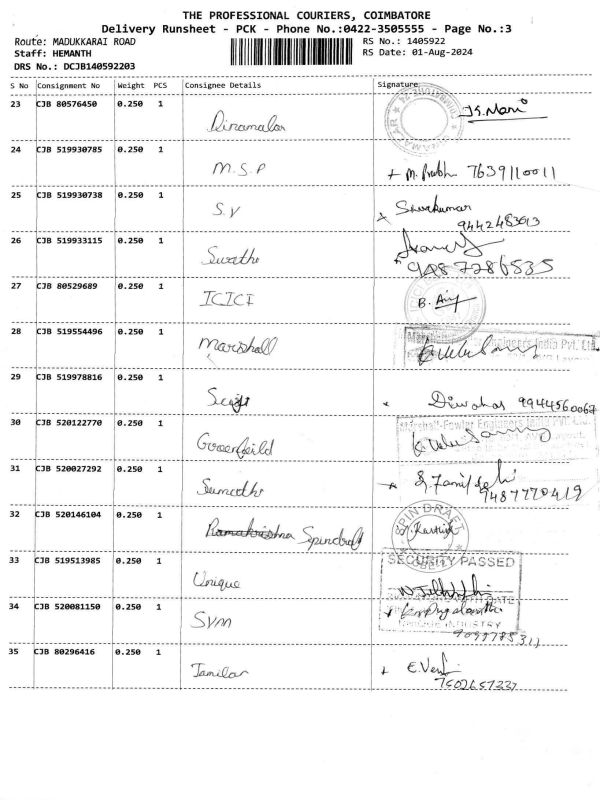 THE PROFESSIONAL COURIERS, COIMBATORE
Delivery Runsheet - PCK - Phone No.:0422-3505555 - Page No.:3
Route: MADUKKARAI ROAD
RS No.: 1405922
Staff: HEMANTH
RS Date: 01-Aug-2024
DRS No.: DCJB140592203
S No Consignment No Weight PCS Consignee Details Signature
23 CJB 80576450 0.250 1 Dinamalar
24 CJB 519930785 0.250 1 M.S.P M. Prabhu 7639110011
25 CJB 519930738 0.250 1 S.V Sivakumar
9442483013
26 CJB 519933115 0.250 1 Swathi
9487286535
27 CJB 80529689 0.250 1 ICICI B.
28 CJB 519554496 0.250 1 Marshall
Engineers India Pvt. Ltd.
29 CJB 519978816 0.250 1 Diwahar 9944560067
Marshall-Fowler Engineers India Pvt. Ltd.
30 CJB 520122770 0.250 1 Greenfeild
31 CJB 520027292 0.250 1 Sumathi
9487770419
32 CJB 520146104 0.250 1 Ramakrishna Spindraft SPIN DRAFT Karthik
33 CJB 519513985 0.250 1 Unique SECURITY PASSED
34 CJB 520081150 0.250 1 SVM
INDUSTRY
35 CJB 80296416 0.250 1 Tamilar E.
7502657237